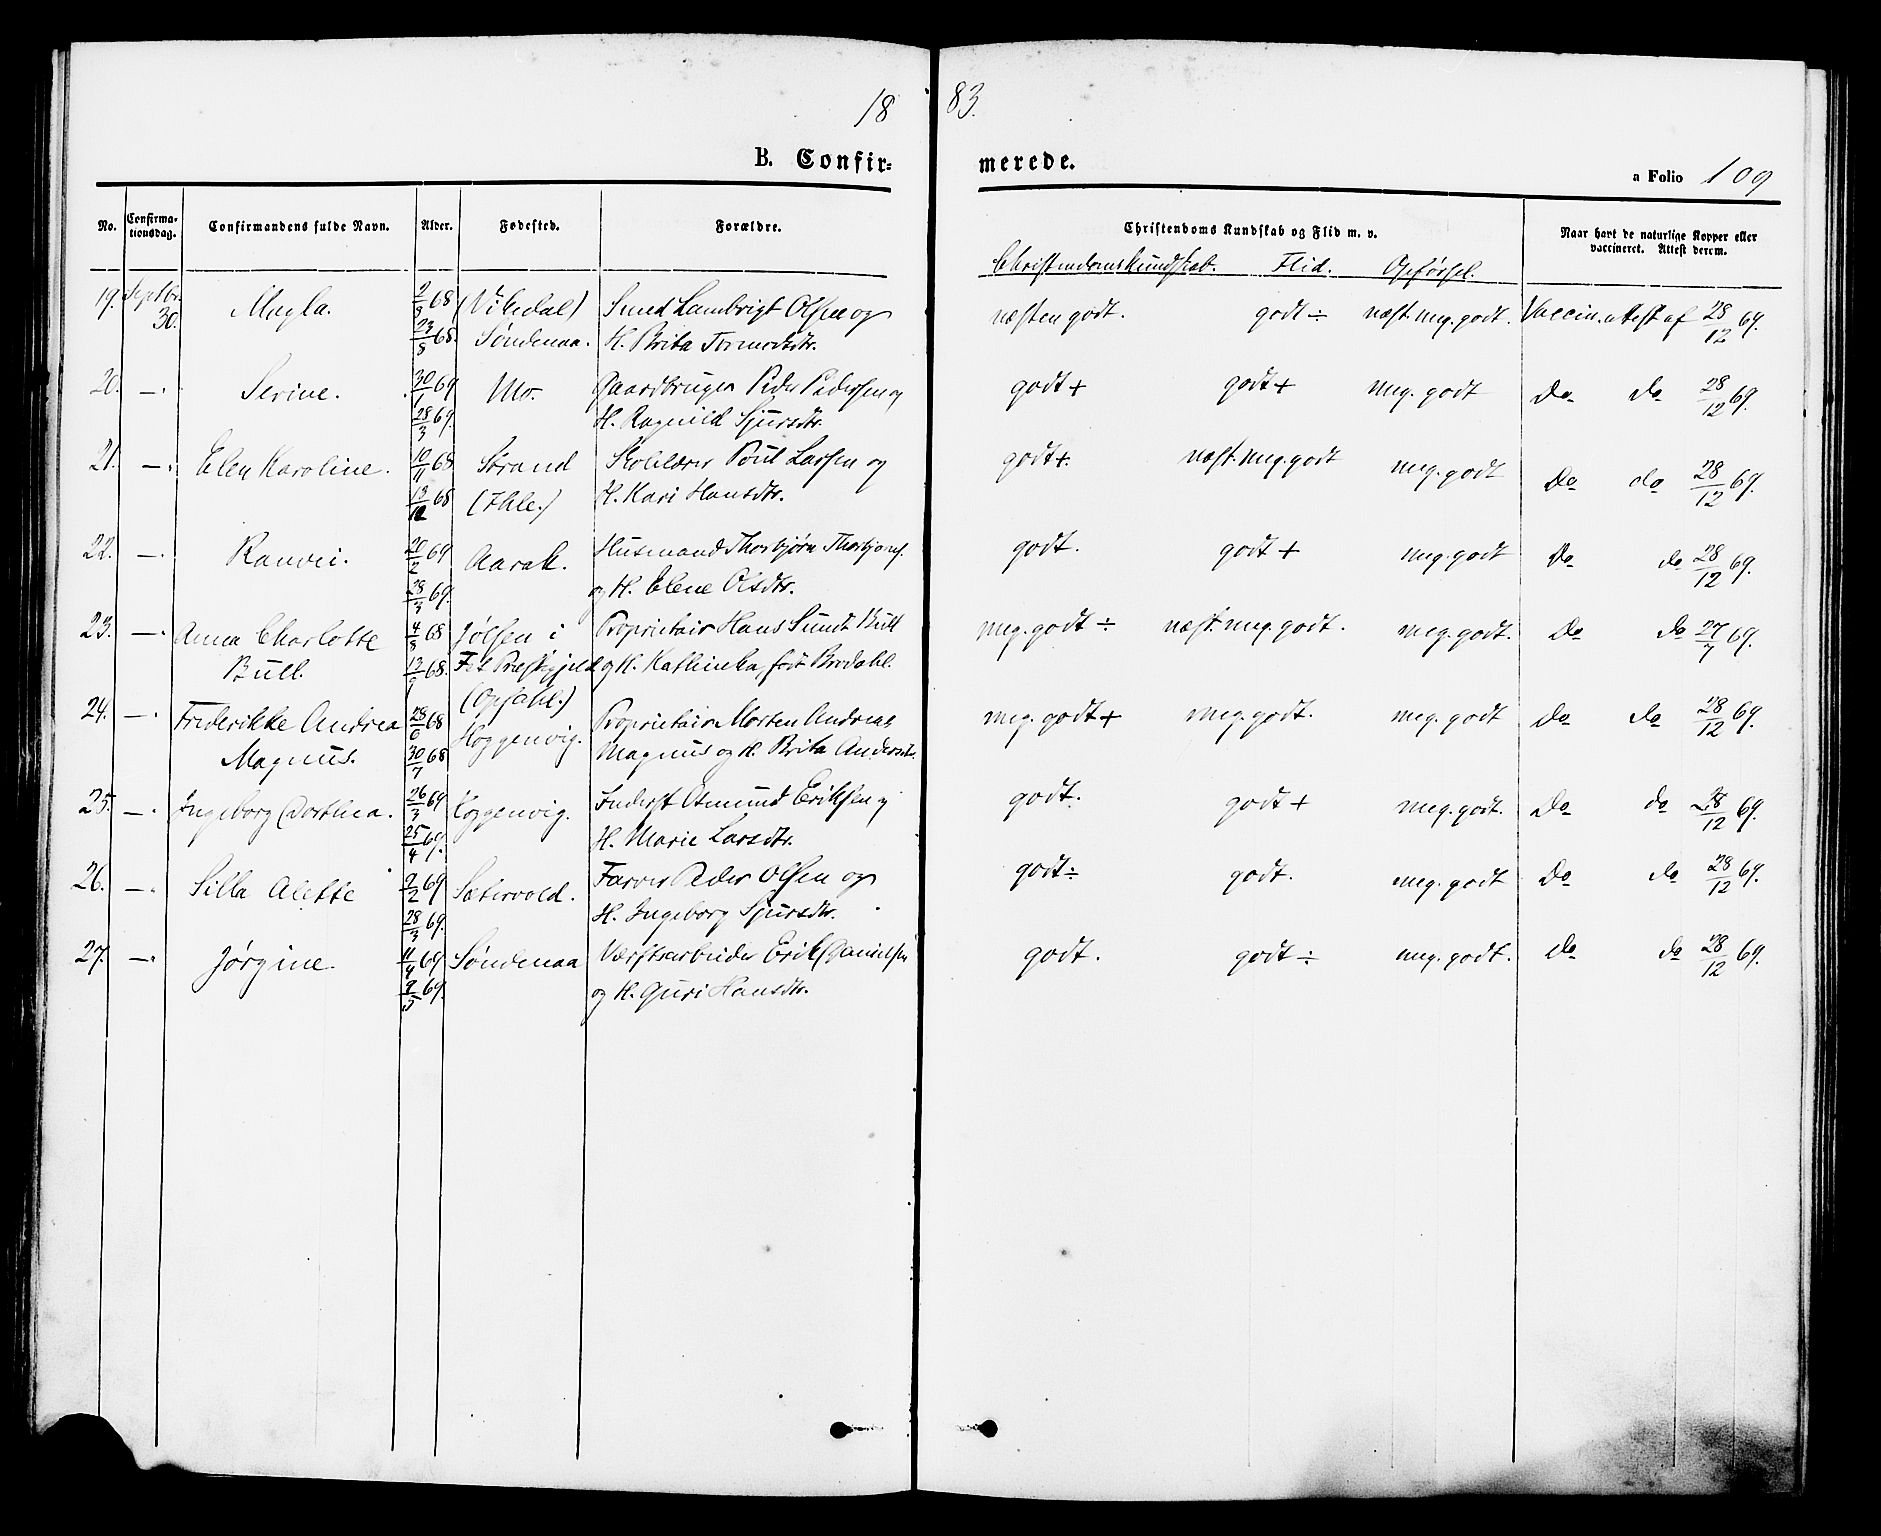 18 83.
B. Confir=merede.
a Folio 109
No. Confirmationsdag. Confirmandens fulde Navn. Alder. Fødested. Forældre. Christendoms Kundskab og Flid m. v. Naar havt de naturlige Kopper eller vaccineret. Attest derem.
Christendomskundskab. Flid. Opførsel.
19. Septbr. 30. Magla. 68 (Vikedal) Smed Lambrigt Olsen og næsten godt. godt ÷ næst. meg. godt. Vaccin. attest af 28/12 69.
23/8 68. Søndenaa. H. Brita Tormodsdtr.
20. — Serine. 30/1 69 Mo. Gaardbruger Peder Pedersen og godt + godt + meg. godt Do do 28/12 69.
28/3 69. H. Ragnild Sjursdtr.
21. — Elen Karoline. 10/11 68 Strand Skolelærer Poul Larsen og godt +. næst. meg. godt meg. godt Do do 28/12 69.
13/12 68 (Ihle.) H. Kari Hansdtr.
22. — Ranvei. 20/2 69 Aarak. Husmand Thorbjørn Thorbjørns. godt. godt + meg. godt Do do 28/12 69.
28/3 69. og H. Elene Olsdtr.
23. — Anna Charlotte 4/8 68 Jølsen i Proprietair Hans Sundt Bull meg. godt ÷ næst. meg. godt. meg. godt. Do do 27/7 69.
Bull. 13/9 68. Fet Præstegjeld og H. Kathinka, født Brodahl.
(Opsahl.)
24. — Frederikke Andrea 28/6 68 Hoggenvig. Proprietair Morten Andreas meg. godt + meg. godt. meg. godt Do do 28/12 69.
Magnus. 30/7 68 Magnus og H. Brita Andersdtr.
25. — Ingeborg Dorthea. 26/3 69 Hoggenvig. Inderst Asmund Eriksen og godt. godt + meg. godt. Do do 28/12 69.
25/4 69. H. Marie Larsdtr.
26. — Silla Alette 2/2 69 Sætervold. Farver Peder Olsen og godt ÷ godt. meg. godt Do do 28/12 69.
28/3 69. H. Ingeborg Sjursdtr.
27. — Jørgine. 11/4 69 Søndenaa Værftsarbeider Erik Danielsen godt. godt ÷ meg. godt. Do do 28/12 69.
69. og H. Guri Hansdtr.